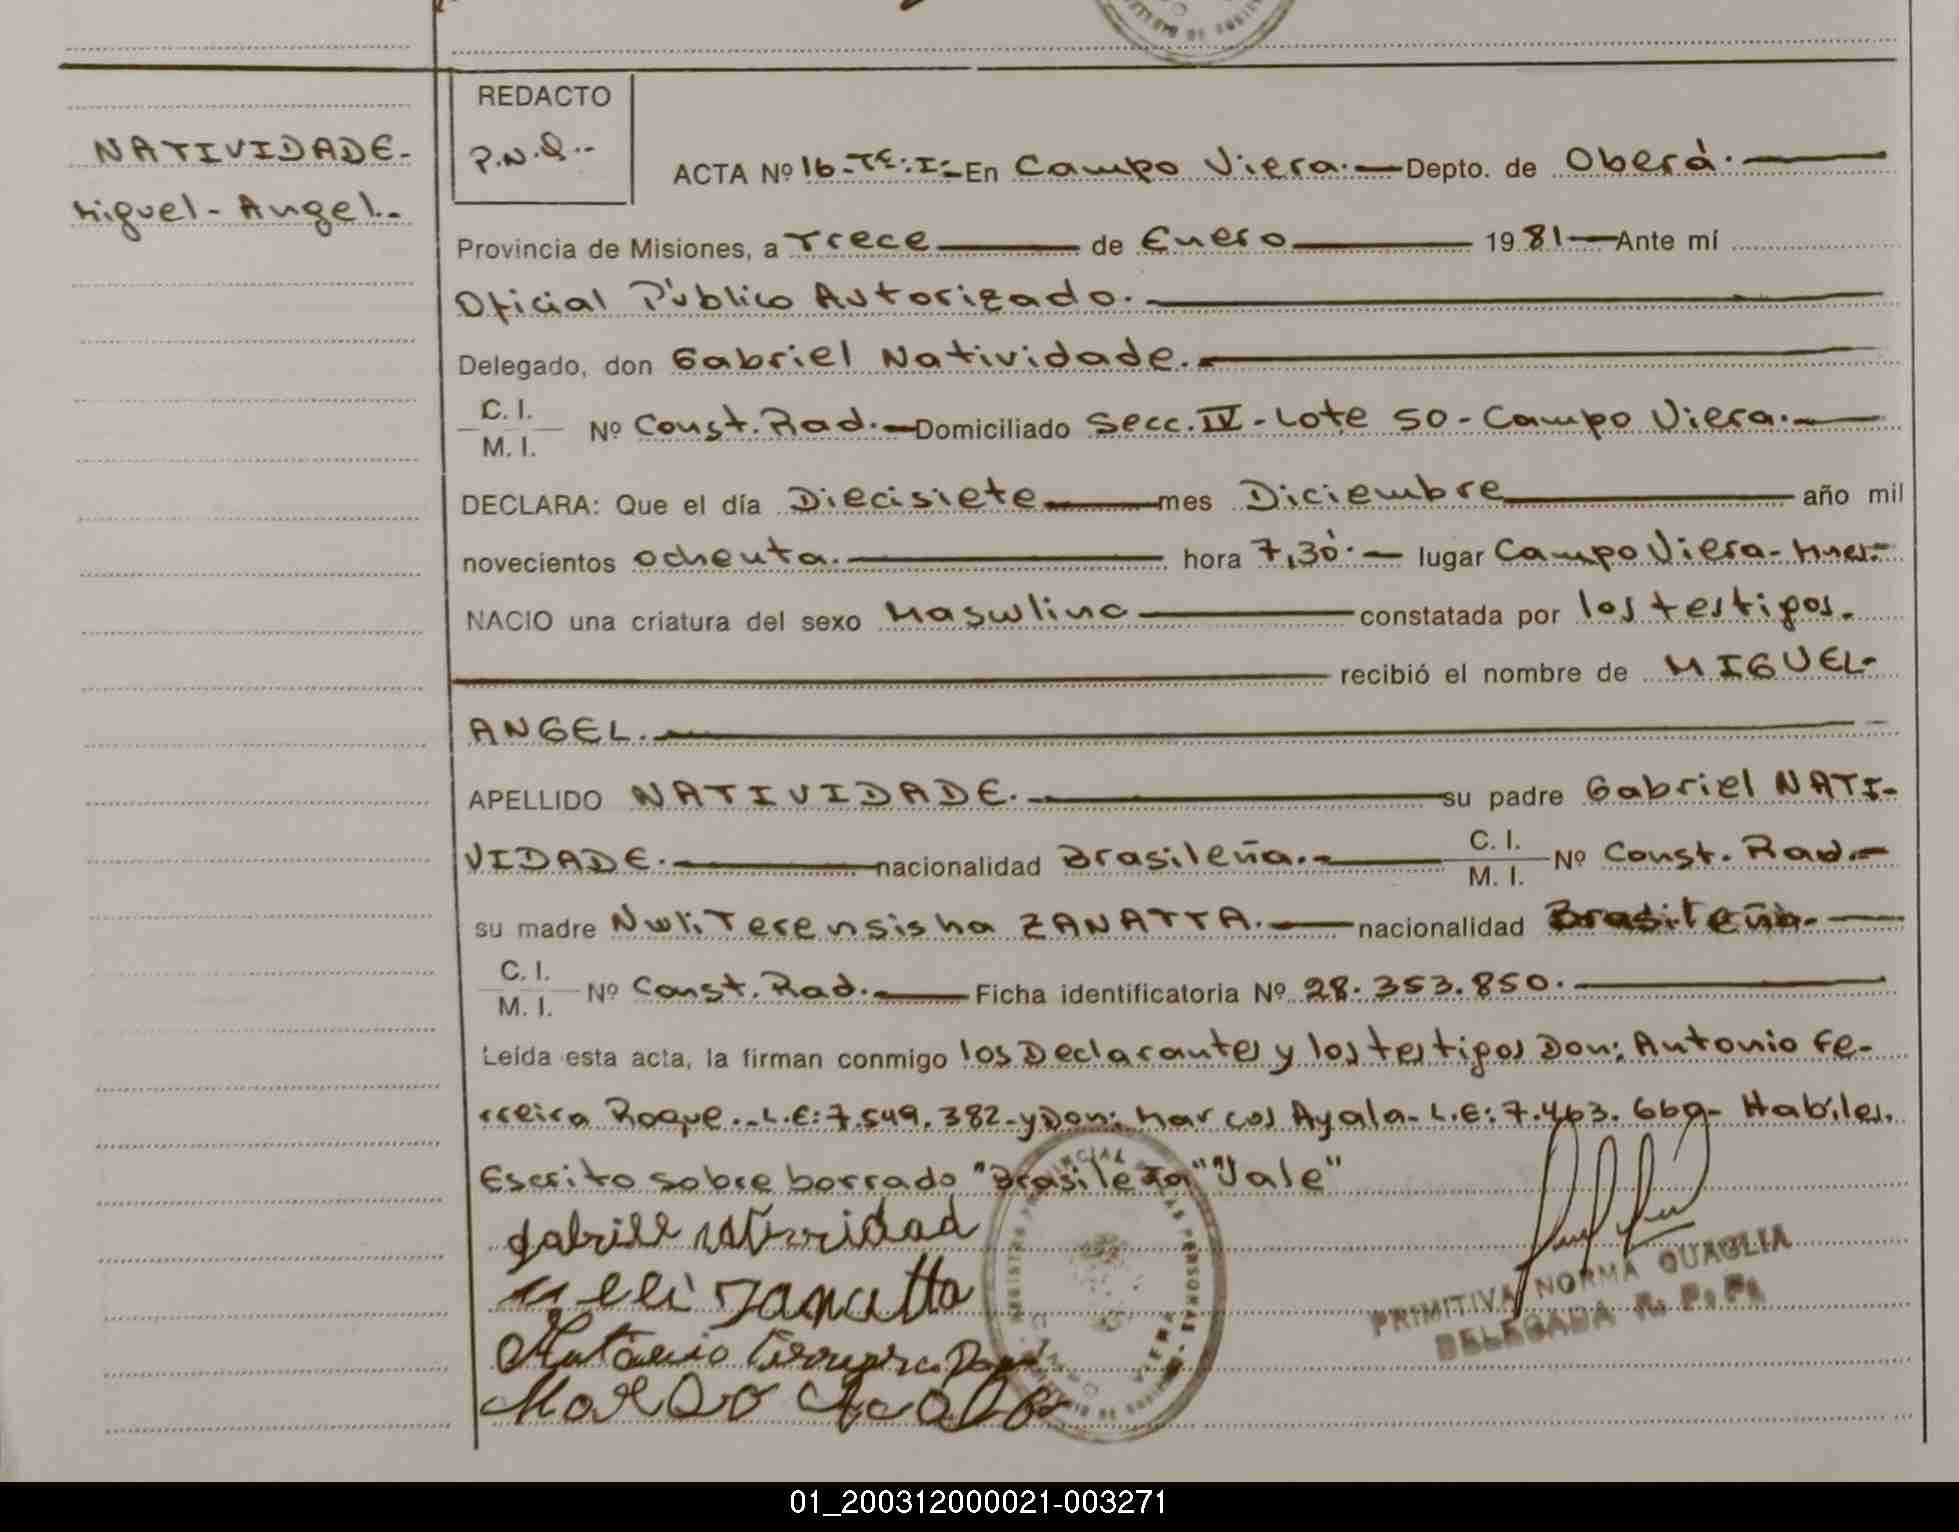 REDACTO
P.N.Q.-
NATIVIDADE.
Miguel - Angel.-
ACTA Nº 16-Tº:I:- En Campo Viera.- Depto. de Oberá.-
Provincia de Misiones, a Trece de Enero 1981 Ante mí
Oficial Público Autorizado.
Delegado, don Gabriel Natividade.
C. I.
M. I. Nº Const. Rad.- Domiciliado Secc. IV - Lote 50 - Campo Viera.-
DECLARA: Que el día Diecisiete mes Diciembre año mil
novecientos ochenta. hora 7,30.- lugar Campo Viera - Mnes.-
NACIO una criatura del sexo Masculino constatada por los testigos.
recibió el nombre de MIGUEL-
ANGEL.
APELLIDO NATIVIDADE. su padre Gabriel NATI-
VIDADE. nacionalidad Brasileña.- C. I. M. I. Nº Const. Rad.-
su madre Terensisha ZANATTA.- nacionalidad Brasileña.-
C. I.
M. I. Nº Const. Rad.- Ficha identificatoria Nº 28.353.850.
Leída esta acta, la firman conmigo los Declarantes y los testigos Don: Antonio Fe-
rreira Roque.- L.E: 7.549.382- y Don: Marcos Ayala- L.E: 7.463.669- Habiles.
Escrito sobre borrado "Brasileña" "Vale"
PROVINCIAL DE LAS PERSONAS
VIERA
PRIMITIVA NORMA QUAGLIA
DELEGADA R. P. P.
01_200312000021-003271